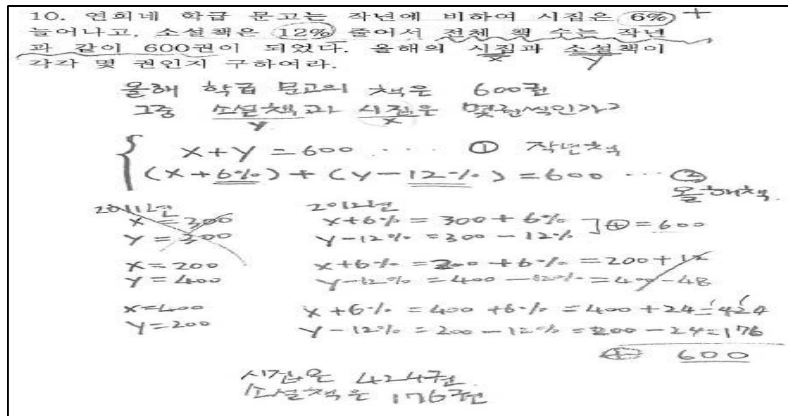 10. 연희네 학급 문고는 작년에 비하여 시집은 6% +
늘어나고, 소설책은 12% 줄어서 전체 책 수는 작년
과 같이 600권이 되었다. 올해의 시집과 소설책이
x y
각각 몇 권인지 구하여라.
올해 학급 문고의 책은 600권
그중 소설책과 시집은 몇권씩인가?
y x
x+y=600 ···· ① 작년책
(x+6%)+(y-12%)=600 ··· ②
올해책
2011년 2012년
x=300 x+6%=300+6% ]⊕=600
y=300 y-12%=300-12%
x=200 x+6%=200+6%=200+12
y=400 y-12%=400-12%=400-48
x=400 x+6%=400+6%=400+24=424
y=200 y-12%=200-12%=200-24=176
⊕ 600
시집은 424권
소설책은 176권